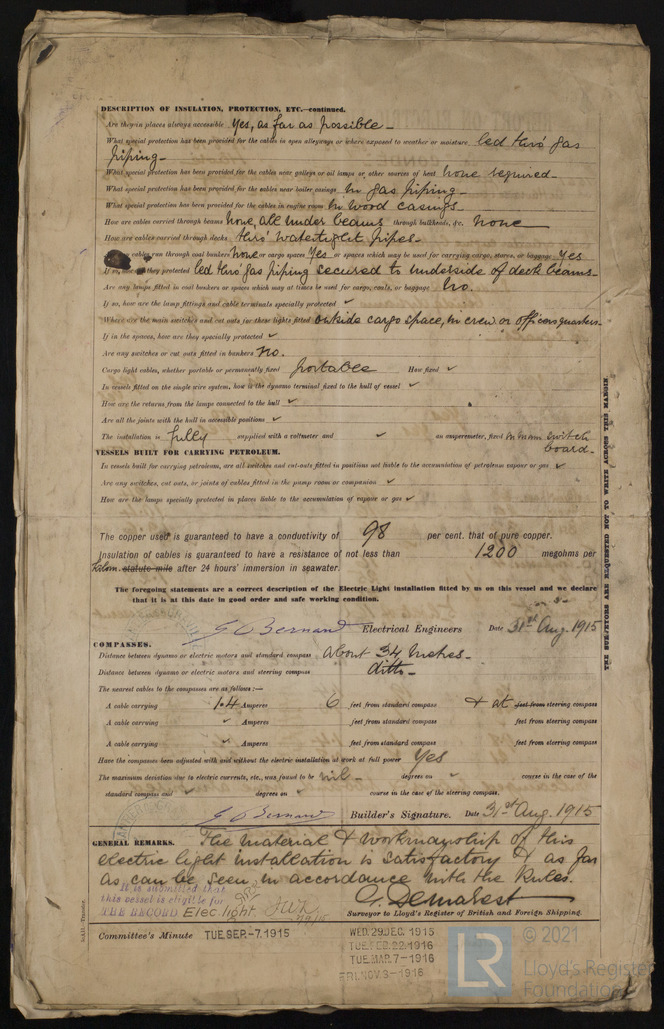 DESCRIPTION OF INSULATION, PROTECTION, ETC.—continued.
Are they in places always accessible Yes, as far as possible –
What special protection has been provided for the cables in open alleyways or where exposed to weather or moisture led thro' gas
piping –
What special protection has been provided for the cables near galleys or oil lamps or other sources of heat none required –
What special protection has been provided for the cables near boiler casings in gas piping –
What special protection has been provided for the cables in engine room in wood casings –
How are cables carried through beams none, all under beams through bulkheads, &c. none
How are cables carried through decks thro' watertight pipes –
cables run through coal bunkers none or cargo spaces Yes or spaces which may be used for carrying cargo, stores, or baggage yes
If so, they protected led thro' gas piping secured to underside of deck beams –
Are any lamps fitted in coal bunkers or spaces which may at times be used for cargo, coals, or baggage No.
If so, how are the lamp fittings and cable terminals specially protected ✓
Where are the main switches and cut outs for these lights fitted outside cargo space, in crew or officers quarters –
If in the spaces, how are they specially protected ✓
Are any switches or cut outs fitted in bunkers no.
Cargo light cables, whether portable or permanently fixed portable How fixed ✓
In vessels fitted on the single wire system, how is the dynamo terminal fixed to the hull of vessel ✓
How are the returns from the lamps connected to the hull ✓
Are all the joints with the hull in accessible positions ✓
The installation is fully supplied with a voltmeter and ✓ an amperemeter, fixed on main switch
board –
VESSELS BUILT FOR CARRYING PETROLEUM.
In vessels built for carrying petroleum, are all switches and cut-outs fitted in positions not liable to the accumulation of petroleum vapour or gas ✓
Are any switches, cut outs, or joints of cables fitted in the pump room or companion ✓
How are the lamps specially protected in places liable to the accumulation of vapour or gas ✓
The copper used is guaranteed to have a conductivity of 98 per cent. that of pure copper.
Insulation of cables is guaranteed to have a resistance of not less than 1200 megohms per
kilom. statute mile after 24 hours' immersion in seawater.
The foregoing statements are a correct description of the Electric Light installation fitted by us on this vessel and we declare
that it is at this date in good order and safe working condition.
Electrical Engineers Date 31st Aug. 1915
COMPASSES.
Distance between dynamo or electric motors and standard compass about 34 metres –
Distance between dynamo or electric motors and steering compass ditto –
The nearest cables to the compasses are as follows:—
A cable carrying 1.4 Amperes 6 feet from standard compass & at feet from steering compass
A cable carrying ✓ Amperes feet from standard compass feet from steering compass
A cable carrying ✓ Amperes feet from standard compass feet from steering compass
Have the compasses been adjusted with and without the electric installation at work at full power Yes
The maximum deviation due to electric currents, etc., was found to be nil – degrees on ✓ course in the case of the
standard compass and ✓ degrees on ✓ course in the case of the steering compass.
Builder's Signature. Date 31st Aug. 1915
GENERAL REMARKS. The material & workmanship of this
electric light installation is satisfactory & as far
as can be seen, in accordance with the Rules.
It is submitted that
this vessel is eligible for
THE RECORD Elec light
C. Demarest
Surveyor to Lloyd's Register of British and Foreign Shipping.
Committee's Minute TUE. SEP.-7.1915
WED. 29 DEC. 1915
TUE. FEB. 22 1916
TUE. MAR. 7-1916
FRI. NOV. 3-1916
THE SURVEYORS ARE REQUESTED NOT TO WRITE ACROSS THIS MARGIN
LR
© 2021
Lloyd's Register
Foundation